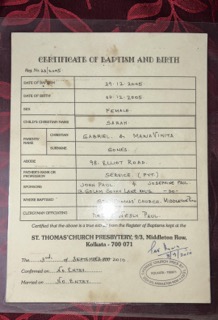 CERTIFICATE OF BAPTISM AND BIRTH
DATE OF BAPTISM 29.12.2005
DATE OF BIRTH
SEX FEMALE
CHILD'S CHRISTIAN NAME SARAH
PARENTS' NAME CHRISTIAN GABRIEL & MARIA VINITA
SURNAME GOMES
ABODE 98, ELLIOT ROAD
FATHER'S RANK OR PROFESSION SERVICE (PVT)
SPONSORS JOHN PAUL & JOSEPHINE PAUL
WHERE BAPTISED ST. THOMAS' CHURCH, MIDDLETON ROW
CLERGYMAN OFFICIATING PAUL
Certified that the above is a true extract from the Register of Baptisms kept at the
ST. THOMAS' CHURCH PRESBYTERY, 9/3, Middleton Row,
Kolkata - 700 071
The 3rd of SEPTEMBER 2010
Confirmed on No ENTRY
Married to No ENTRY